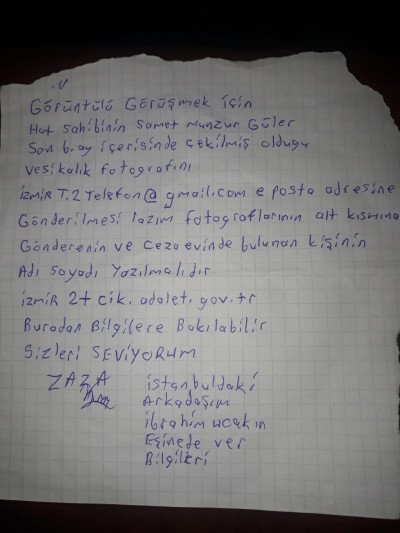 Görüntülü Görüşmek için
Hat sahibinin Samet Munzur Güler
Son 6.ay içerisinde çekilmiş olduğu
vesikalık fotoğrafını
izmir T.2 Telefon@gmail.com e posta adresine
Gönderilmesi lazım fotoğraflarının alt kısmına
Gönderenin ve Cezaevinde bulunan kişinin
Adı soyadı Yazılmalıdır
izmir 2t cik.adalet.gov.tr
Buradan Bilgilere Bakılabilir
Sizleri SEVİYORUM
ZAZA
istanbuldaki
Arkadaşım
ibrahim ucakın
Eşinede ver
Bilgileri